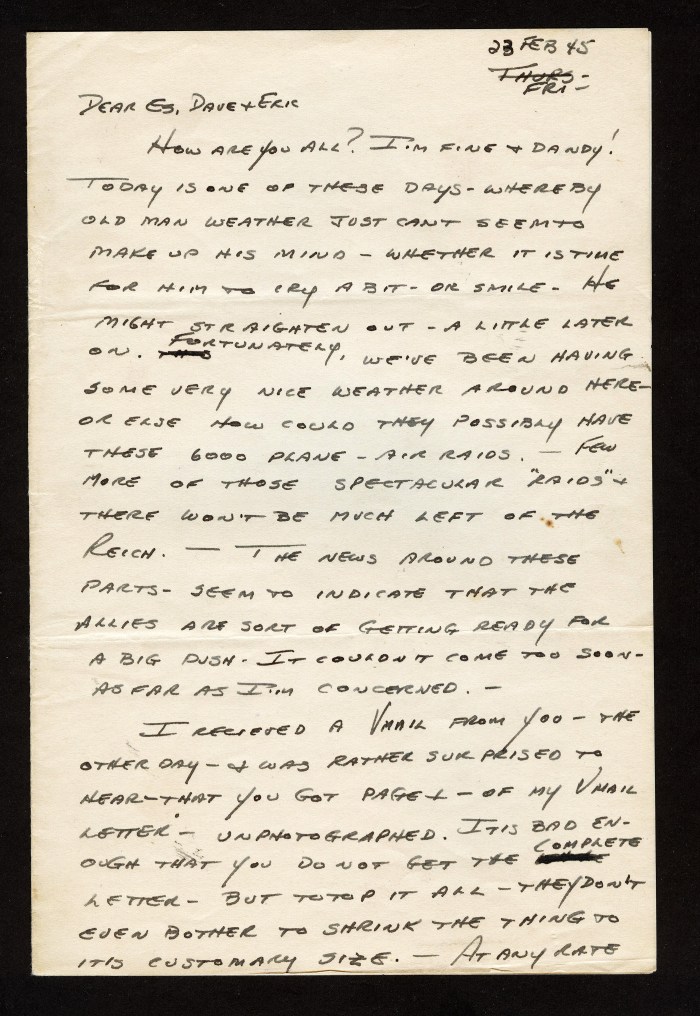 23 FEB 45
THURS-
FRI-
DEAR ES, DAVE & ERIC
HOW ARE YOU ALL? I'M FINE & DANDY!
TODAY IS ONE OF THESE DAYS- WHEREBY
OLD MAN WEATHER JUST CAN'T SEEM TO
MAKE UP HIS MIND - WHETHER IT IS TIME
FOR HIM TO CRY A BIT- OR SMILE- HE
MIGHT STRAIGHTEN OUT - A LITTLE LATER
ON. FORTUNATELY, WE'VE BEEN HAVING
SOME VERY NICE WEATHER AROUND HERE-
OR ELSE HOW COULD THEY POSSIBLY HAVE
THESE 6000 PLANE - AIR RAIDS. - FEW
MORE OF THOSE SPECTACULAR "RAIDS" &
THERE WON'T BE MUCH LEFT OF THE
REICH. - THE NEWS AROUND THESE
PARTS- SEEM TO INDICATE THAT THE
ALLIES ARE SORT OF GETTING READY FOR
A BIG PUSH. IT COULDN'T COME TOO SOON-
AS FAR AS I'M CONCERNED. -
I RECIEVED A VMAIL FROM YOU - THE
OTHER DAY - & WAS RATHER SURPRISED TO
HEAR-THAT YOU GOT PAGE 1 - OF MY VMAIL
LETTER - UNPHOTOGRAPHED. IT IS BAD EN-
OUGH THAT YOU DO NOT GET THE COMPLETE
LETTER- BUT TO TOP IT ALL - THEY DON'T
EVEN BOTHER TO SHRINK THE THING TO
IT'S CUSTOMARY SIZE. - AT ANY RATE